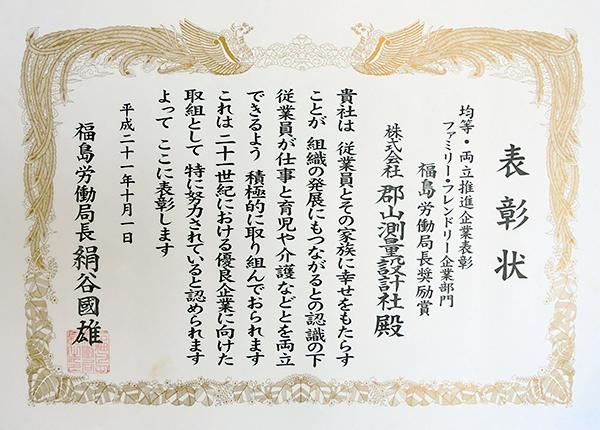 表彰状
均等・両立推進企業表彰
ファミリー・フレンドリー企業部門
福島労働局長奨励賞
株式会社 郡山測量設計社殿
貴社は 従業員とその家族に幸せをもたらす
ことが 組織の発展にもつながるとの認識の下
従業員が仕事と育児や介護などとを両立
できるよう 積極的に取り組んでおられます
これは 二十一世紀における優良企業に向けた
取組として 特に努力されていると認められます
よって ここに表彰します
平成二十一年十月一日
福島労働局長 絹谷國雄